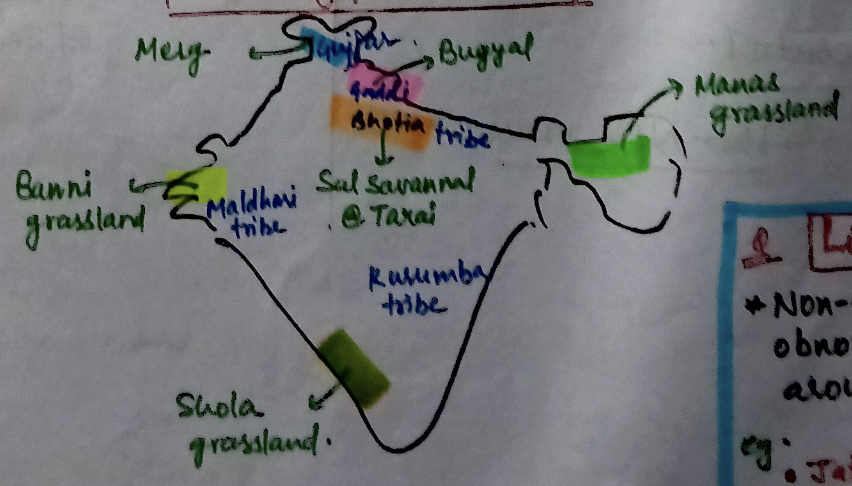 Merg
Gujjar
Bugyal
Gaddi
Bhotia tribe
Manas
grassland
Banni
grassland
Maldhari
tribe
Sal Savannah
@ Tarai
Kusumba
tribe
Shola
grassland.
* Non-
obno
arou
eg: